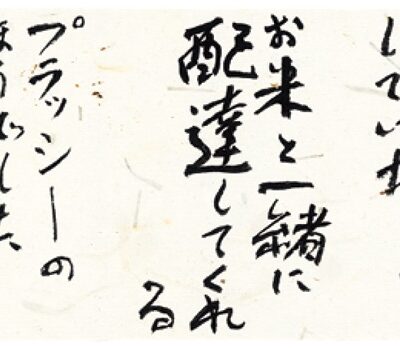 してい
お米と一緒に
配達してくれ
る
プラッシーの
ほうでした、